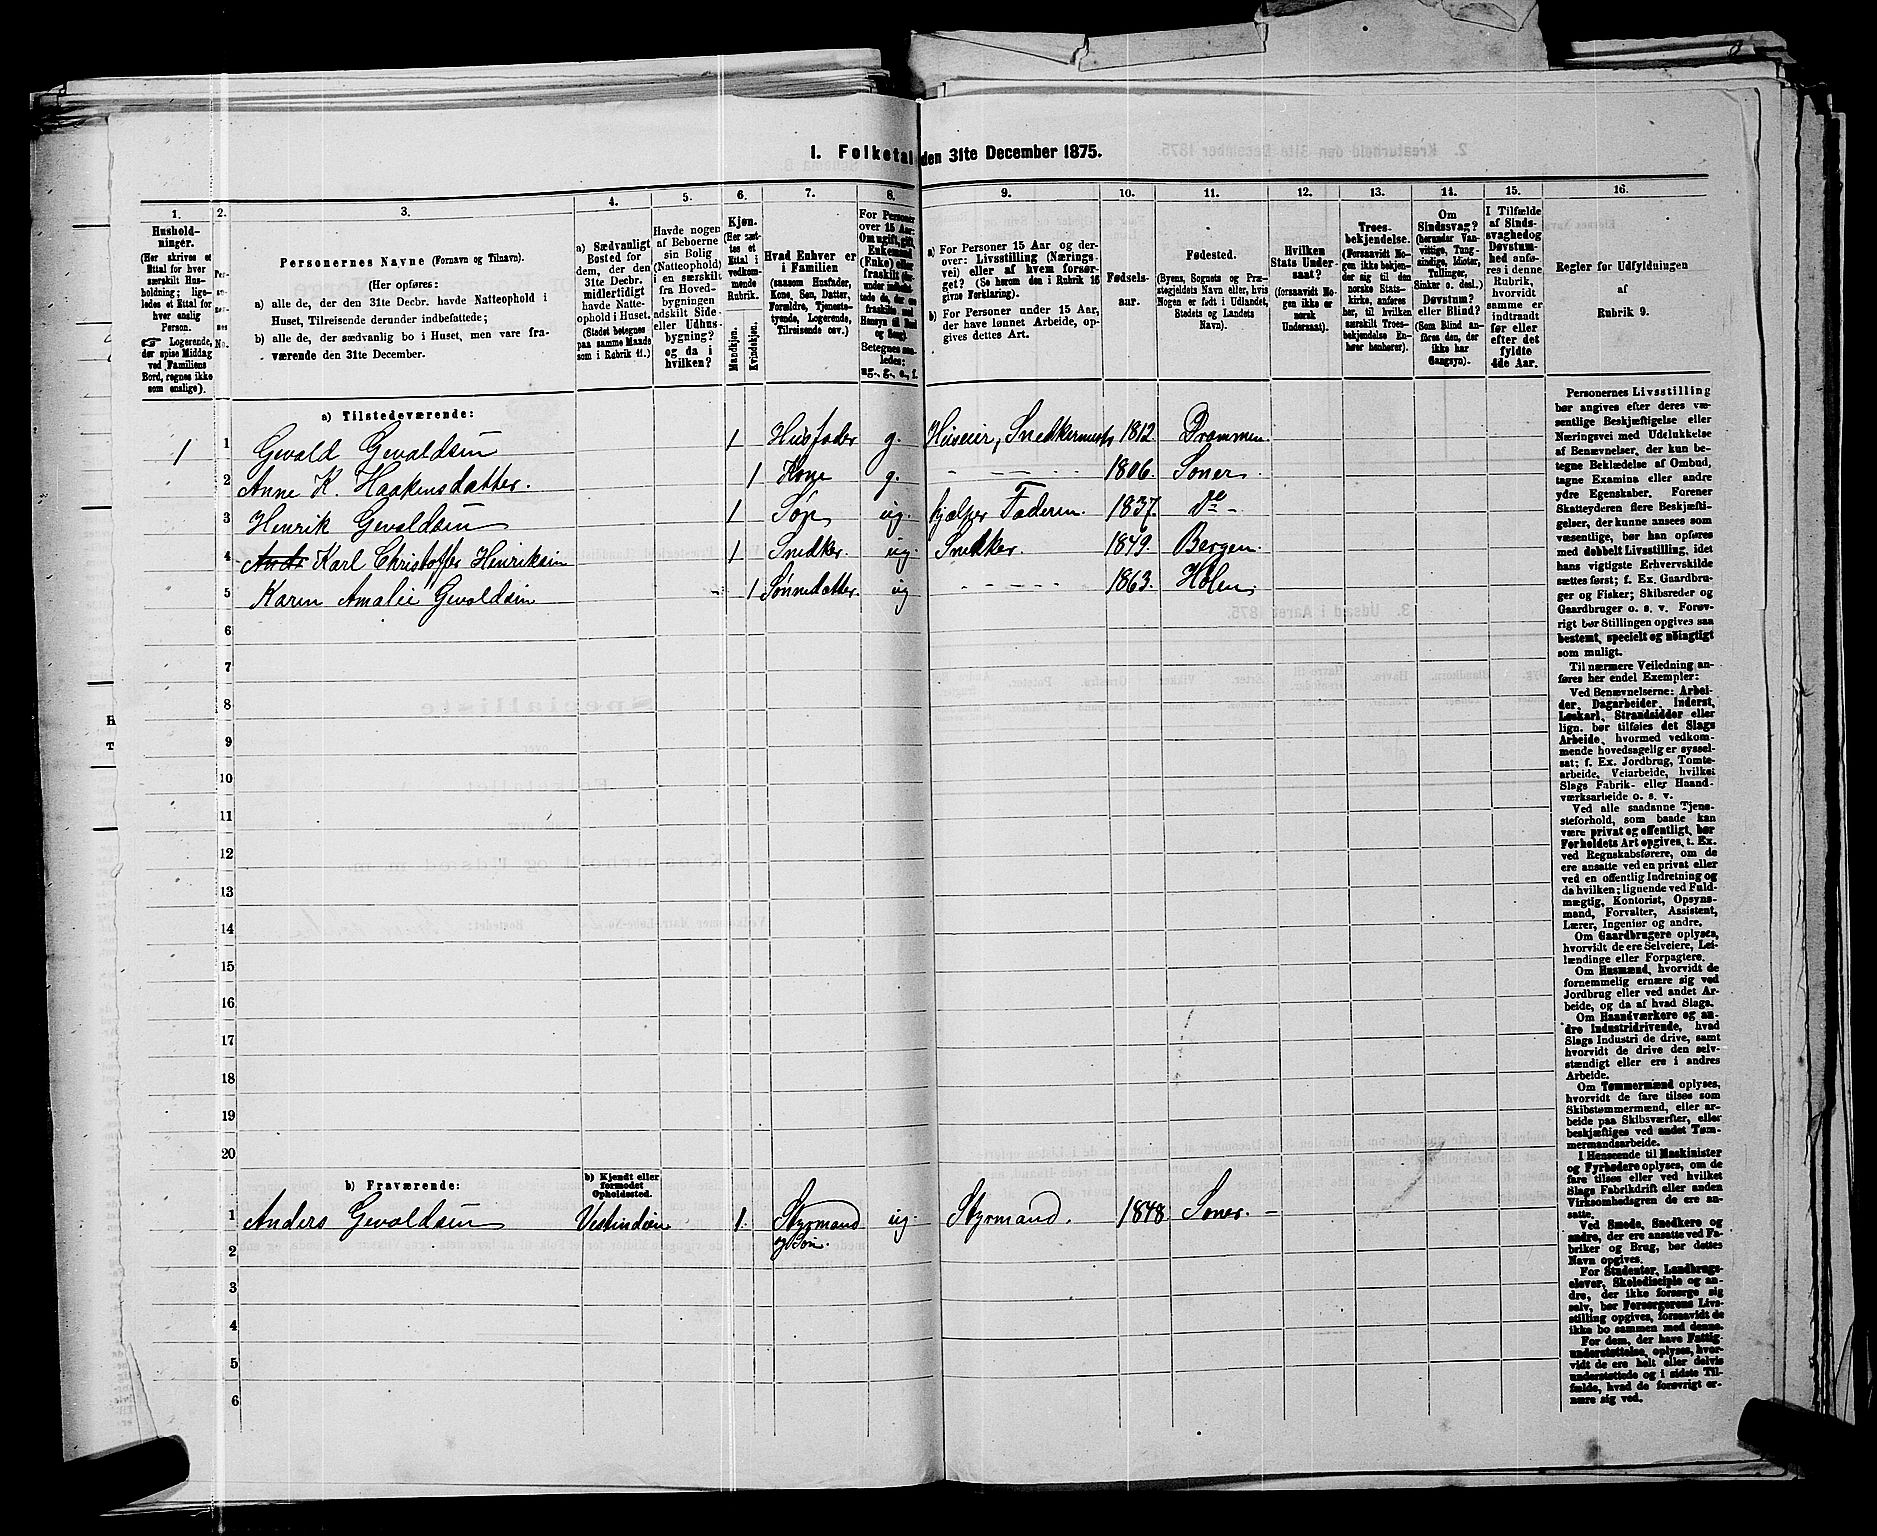 1. Folketal den 31te December 1875.
1.
2.
3.
4.
5.
6.
7.
8.
9.
10.
11.
12.
13.
14.
15.
16.
Hushold-
ninger.
(Her skrives et
Ettal for hver
særskilt Hus-
holdning; lige-
ledes et Ettal for
hver enslig
Person.
☞ Logerende,
der spise Middag
ved Familiens
Bord, regnes ikke
som enslige).
Per-
so-
ner-
nes
No.
Personernes Navne (Fornavn og Tilnavn).
(Her opføres:
a) alle de, der den 31te Decbr. havde Natteophold i
Huset, Tilreisende derunder indbefattede;
b) alle de, der sædvanlig bo i Huset, men vare fra-
værende den 31te December.
a) Sædvanligt
Bosted for
dem, der den
31te Decbr.
midlertidigt
havde Natte-
ophold i Huset.
(Stedet betegnes
paa samme Maade
som i Rubrik 11.)
Havde nogen
af Beboerne
sin Bolig
(Natteophold)
i en særskilt
fra Hoved-
bygningen
adskilt Side-
eller Udhus-
bygning?
og da i
hvilken?
Kjøn.
(Her sæt-
tes et
Ettal i
vedkom-
mende
Rubrik.
Mandkjøn.
Kvindekjøn.
Hvad Enhver er
i Familien
(saasom Husfader,
Kone, Søn, Datter,
Forældre, Tjeneste-
tyende, Logerende,
Tilreisende osv.)
For Personer
over 15 Aar:
Om ugift, gift,
Enkemand
(Enke) eller
fraskilt
Betegnes saa-
ledes:
ug., g., e., f.
a) For Personer 15 Aar og der-
over: Livsstilling (Nærings-
vei) eller af hvem forsør-
get? (Se herom den i Rubrik 16
givne Forklaring).
b) For Personer under 15 Aar,
der have lønnet Arbeide, op-
gives dettes Art.
Fødsels-
aar.
Fødested.
(Byens, Sognets og Præ-
stegjeldets Navn eller, hvis
Nogen er født i Udlandet,
Stedets og Landets
Navn).
Hvilken
Stats Under-
saat?
(forsaavidt No-
gen ikke er
norsk
Undersaat).
Troes-
bekjendelse.
(Forsaavidt No-
gen ikke bekjen-
der sig til den
norske Stats-
kirke, anføres
her, til hvilken
særskilt Troes-
bekjendelse En-
hver henhører).
Om
Sindssvag?
(herunder Van-
vittige, Tung-
sindige, Idioter,
Tullinger,
Sinker o. desl.)
Døvstum?
eller Blind?
(Som Blind an-
føres den, der
ikke har
Gangsyn).
I Tilfælde
af Sinds-
svaghed og
Døvstum-
hed anfø-
res i denne
Rubrik,
hvorvidt
samme er
indtraadt
før eller
efter det
fyldte
4de Aar.
Regler for Udfyldningen
af
Rubrik 9.
a) Tilstedeværende:
1 1 Gevald Gevaldsen 1 Husfader g. Huseier, Snedkermestr 1812. Drammen.
2 Anne K. Haakensdatter. 1 Kone g. - - - - 1806. Soner.
3 Henrik Gevaldsen 1 Søn ug. hjælper Faderen. 1837. do -
4 Karl Christoffer Henriksen 1 Snedker. ug. Snedker. 1849. Bergen.
5 Karen Amalie Gevaldsen 1 Sønnedatter. ug - - - - 1863. Holen
6
7
8
9
10
11
12
13
14
15
16
17
18
19
20
b) Fraværende:
b) Kjendt eller
formodet
Opholdssted.
1 Anders Gevaldsen Vestindien 1. Styrmand ug. Styrmand. 1848. Soner. -
og Søn.
2
3
4
5
6
Personernes Livsstilling
bør angives efter deres væ-
sentlige Beskjæftigelse eller
Næringsvei med Udelukkelse
af Benævnelser, der kun be-
tegne Beklædelse af Ombud,
tagne Examina eller andre
ydre Egenskaber. Forener
Skatteyderen flere Beskjæfti-
gelser, der kunne ansees som
væsentlige, bør han opføres
med dobbelt Livsstilling, idet
hans vigtigste Erhvervskilde
sættes først; f. Ex. Gaardbru-
ger og Fisker; Skibsreder og
Gaardbruger o. s. v. Forøv-
rigt bør Stillingen opgives saa
bestemt, specielt og nøiagtigt
som muligt.
Til nærmere Veiledning an-
føres her endel Exempler:
Ved Benævnelserne: Arbei-
der, Dagarbeider, Inderst,
Løskarl, Strandsidder eller
lign. bør tilføies det Slags
Arbeide, hvormed vedkom-
mende hovedsagelig er syssel-
sat; f. Ex. Jordbrug, Tomte-
arbeide, Veiarbeide, hvilket
Slags Fabrik- eller Haand-
værksarbeide o. s. v.
Ved alle saadanne Tjene-
steforhold, som baade kan
være privat og offentligt, bør
Forholdets Art opgives, t. Ex.
ved Regnskabsførere, om de
ere ansatte ved en privat eller
ved en offentlig Indretning og
da hvilken; lignende ved Fuld-
mægtig, Kontorist, Opsyns-
mand, Forvalter, Assistent,
Lærer, Ingeniør og andre.
Om Gaardbrugere oplyses,
hvorvidt de ere Selveiere, Lei-
lændinge eller Forpagtere.
Om Husmænd, hvorvidt de
fornemmelig ernære sig ved
Jordbrug eller ved andet Ar-
beide, og da af hvad Slags.
Om Haandværkere og an-
dre Industridrivende, hvad
Slags Industri de drive, samt
hvorvidt de drive den selv-
stændigt eller ere i andres
Arbeide.
Om Tømmermænd oplyses,
hvorvidt de fare tilsøs som
Skibstømmermænd, eller ar-
beide paa Skibsværfter, eller
beskjæftiges ved andet Tøm-
mermandsarbeide.
I Henseende til Maskinister
og Fyrbødere oplyses, om de
fare tilsøs eller ved hvilket
Slags Fabrikdrift eller anden
Virksomhedsgren de ere an-
satte.
Ved Smede, Snedkere og
andre, der ere ansatte ved Fa-
briker og Brug, bør dettes
Navn opgives.
For Studenter, Landbrugs-
elever, Skoledisciple og an-
dre, der ikke forsørge sig
selv, bør Forsørgerens Livs-
stilling opgives, forsaavidt de
ikke bo sammen med denne.
For dem, der have Fattig-
understøttelse, oplyses, hvor-
vidt de ere helt eller delvis
understøttede og i sidste Til-
fælde, hvad de forøvrigt er-
nære sig ved.